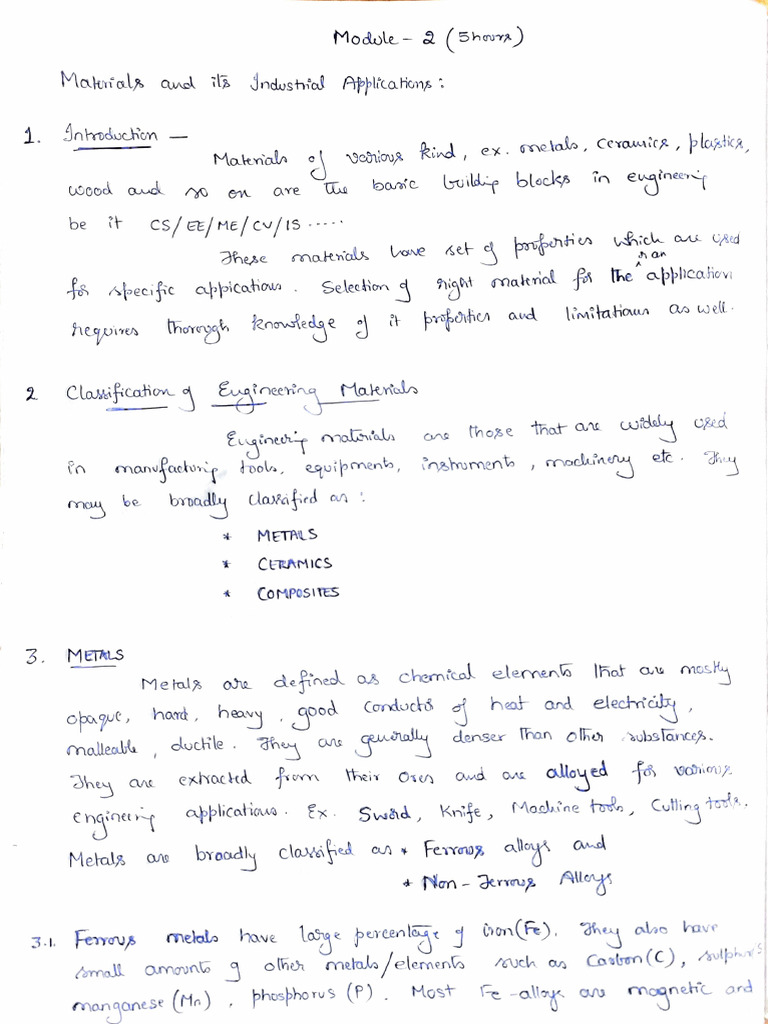 Module - 2 (5hours)
Materials and its Industrial Applications:
1. Introduction —
Materials of various kind, ex. metals, ceramics, plastics,
wood and so on are the basic building blocks in engineering
be it CS/EE/ME/CV/IS .....
These materials have set of properties which are used
for specific appications. Selection of right material for the ^ application
requires thorough knowledge of it properties and limitations as well.
2 Classification of Engineering Materials
Engineering materials are those that are widely used
in manufacturing tools, equipments, instruments, machinery etc. They
may be broadly classified as :
* METALS
* CERAMICS
* COMPOSITES
3. METALS
Metals are defined as chemical elements that are mostly
opaque, hard, heavy, good conductors of heat and electricity,
malleable, ductile. They are generally denser than other substances.
They are extracted from their Ores and are alloyed for various
engineering applications. Ex. Sword, Knife, Machine tools, Cutting tools.
Metals are broadly classified as * Ferrous alloys and
* Non-Ferrous Alloys
3.1. Ferrous metals have large percentage of iron(Fe). They also have
small amounts of other metals/elements such as Carbon(C), sulphur
manganese(Mn), phosphorus(P). Most Fe-alloys are magnetic and